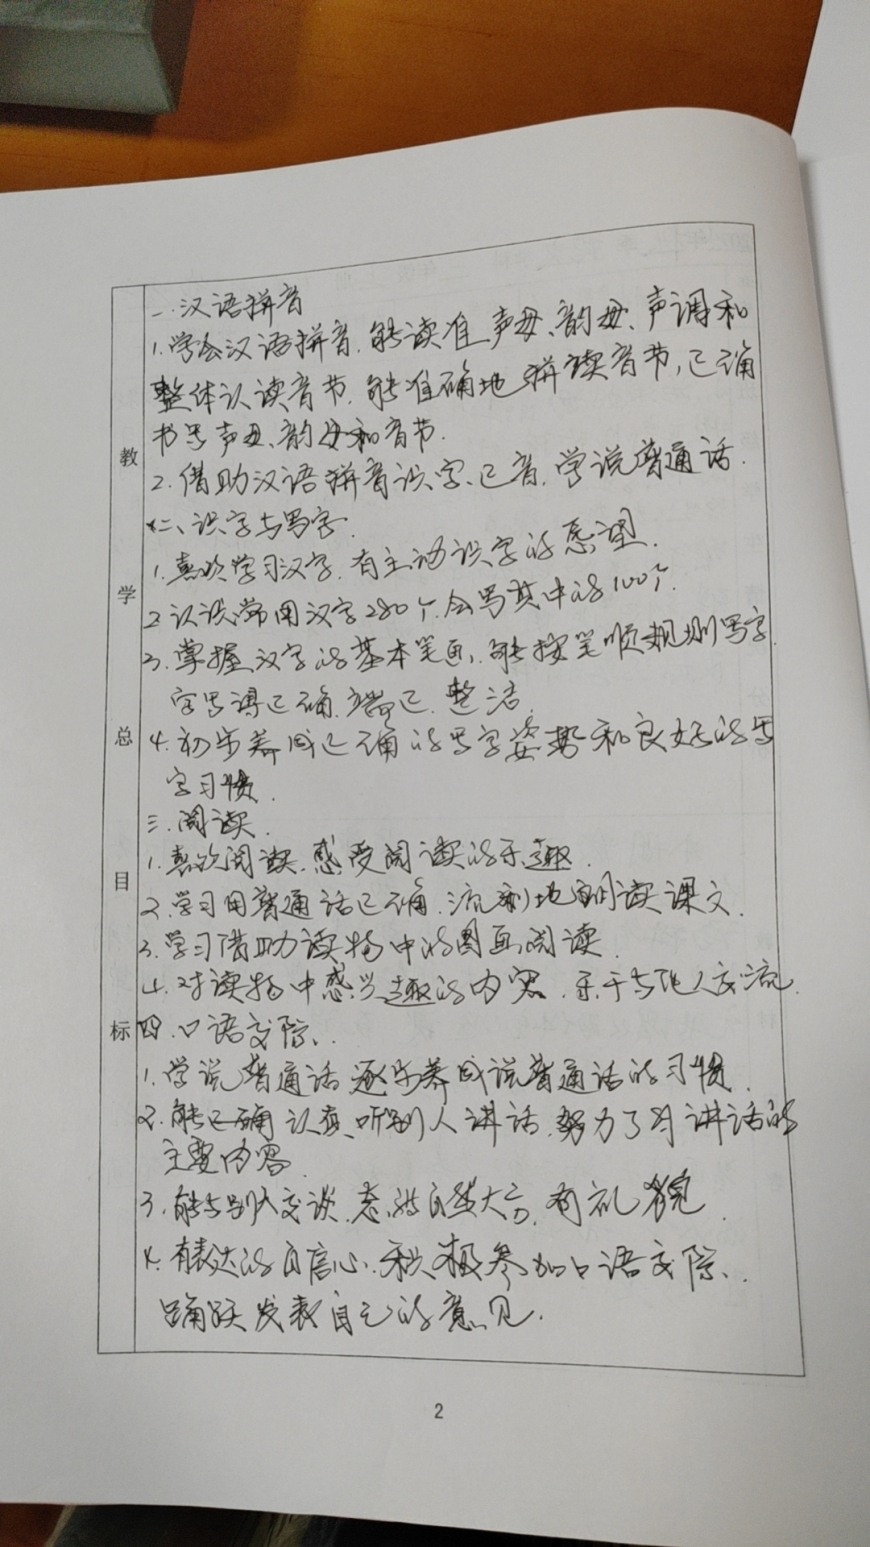 教学总目标
一.汉语拼音
1.学会汉语拼音.能读准声母、韵母、声调和
整体认读音节.能准确地拼读音节,正确
书写声母、韵母和音节.
2.借助汉语拼音识字、正音,学说普通话.
二、识字与写字.
1.喜欢学习汉字.有主动识字的愿望.
2.认识常用汉字280个.会写其中的100个.
3.掌握汉字的基本笔画,能按笔顺规则写字
字写得正确、端正.整洁.
4.初步养成正确的写字姿势和良好的写
字习惯.
三.阅读.
1.喜欢阅读.感受阅读的乐趣.
2.学习用普通话正确.流利地朗读课文.
3.学习借助读物中的图画阅读.
4.对读物中感兴趣的内容.乐于与他人交流.
四.口语交际.
1.学说普通话逐步养成说普通话的习惯.
2.能认真听别人讲话.努力了解讲话的
主要内容.
3.能与别人交谈.态度自然大方.有礼貌.
4.有表达的自信心.积极参加口语交际.
踊跃发表自己的意见.
2